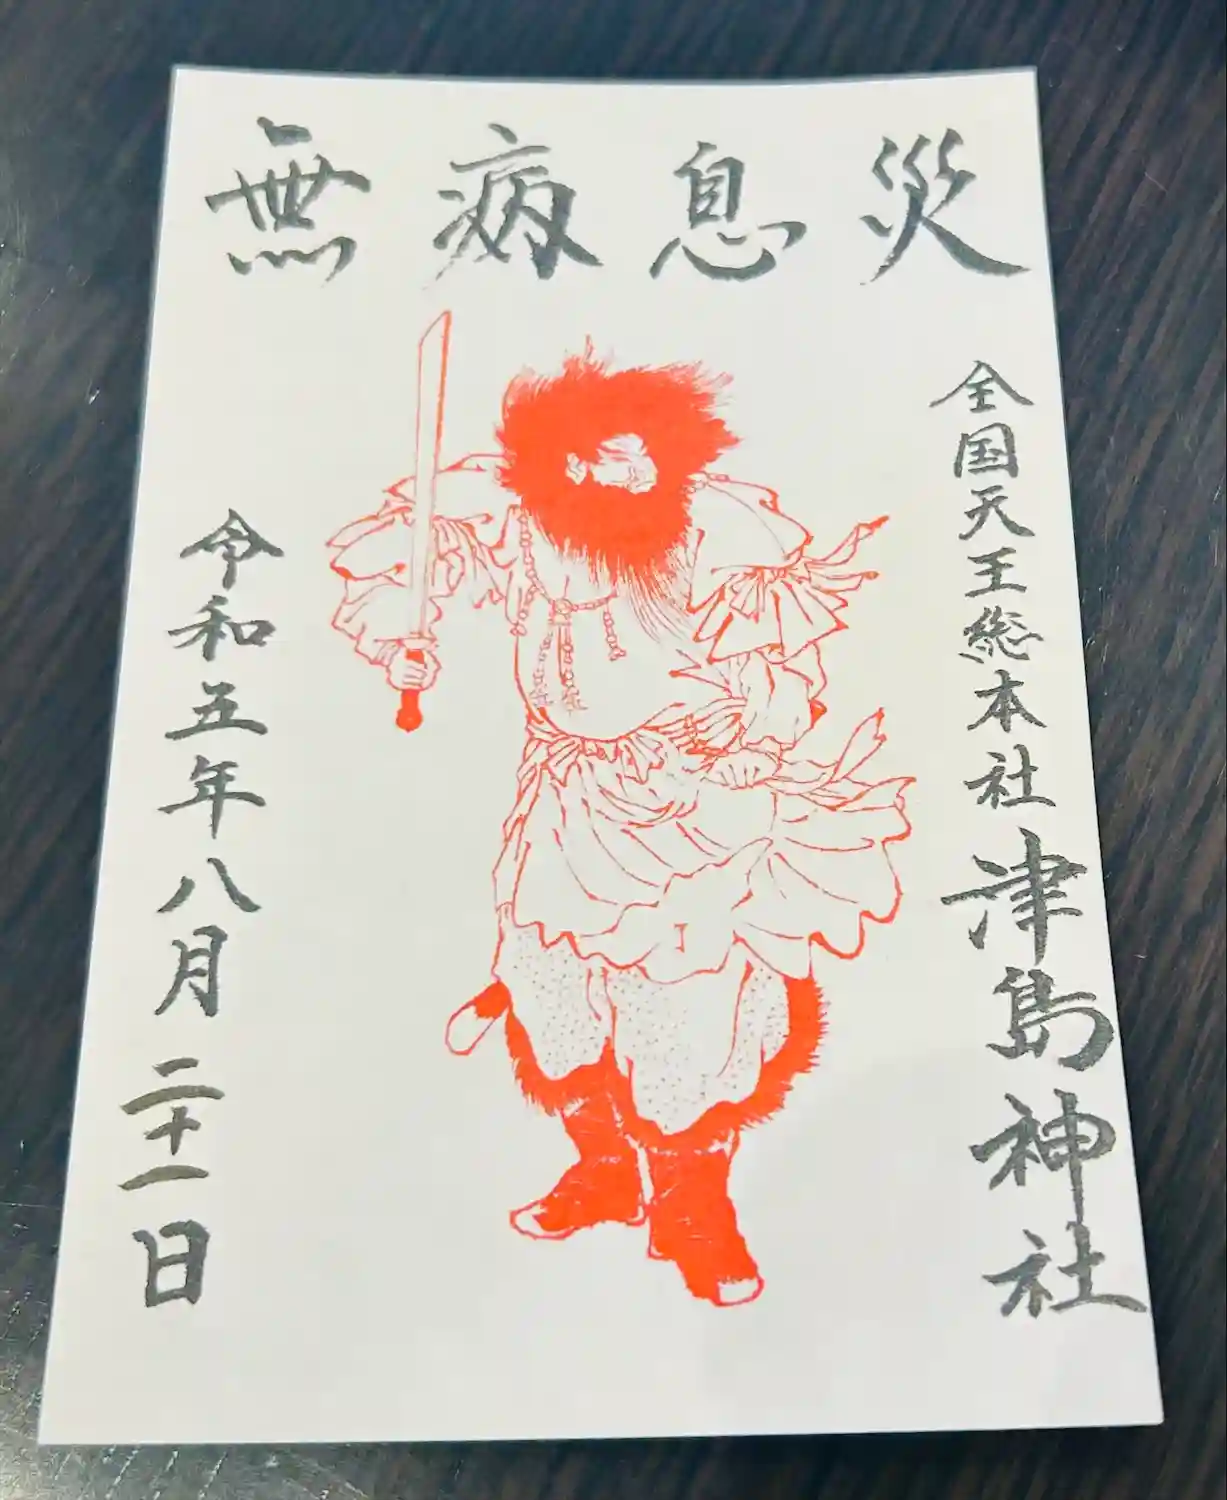 無病息災
全国天王総本社 津島神社
令和五年八月二十一日